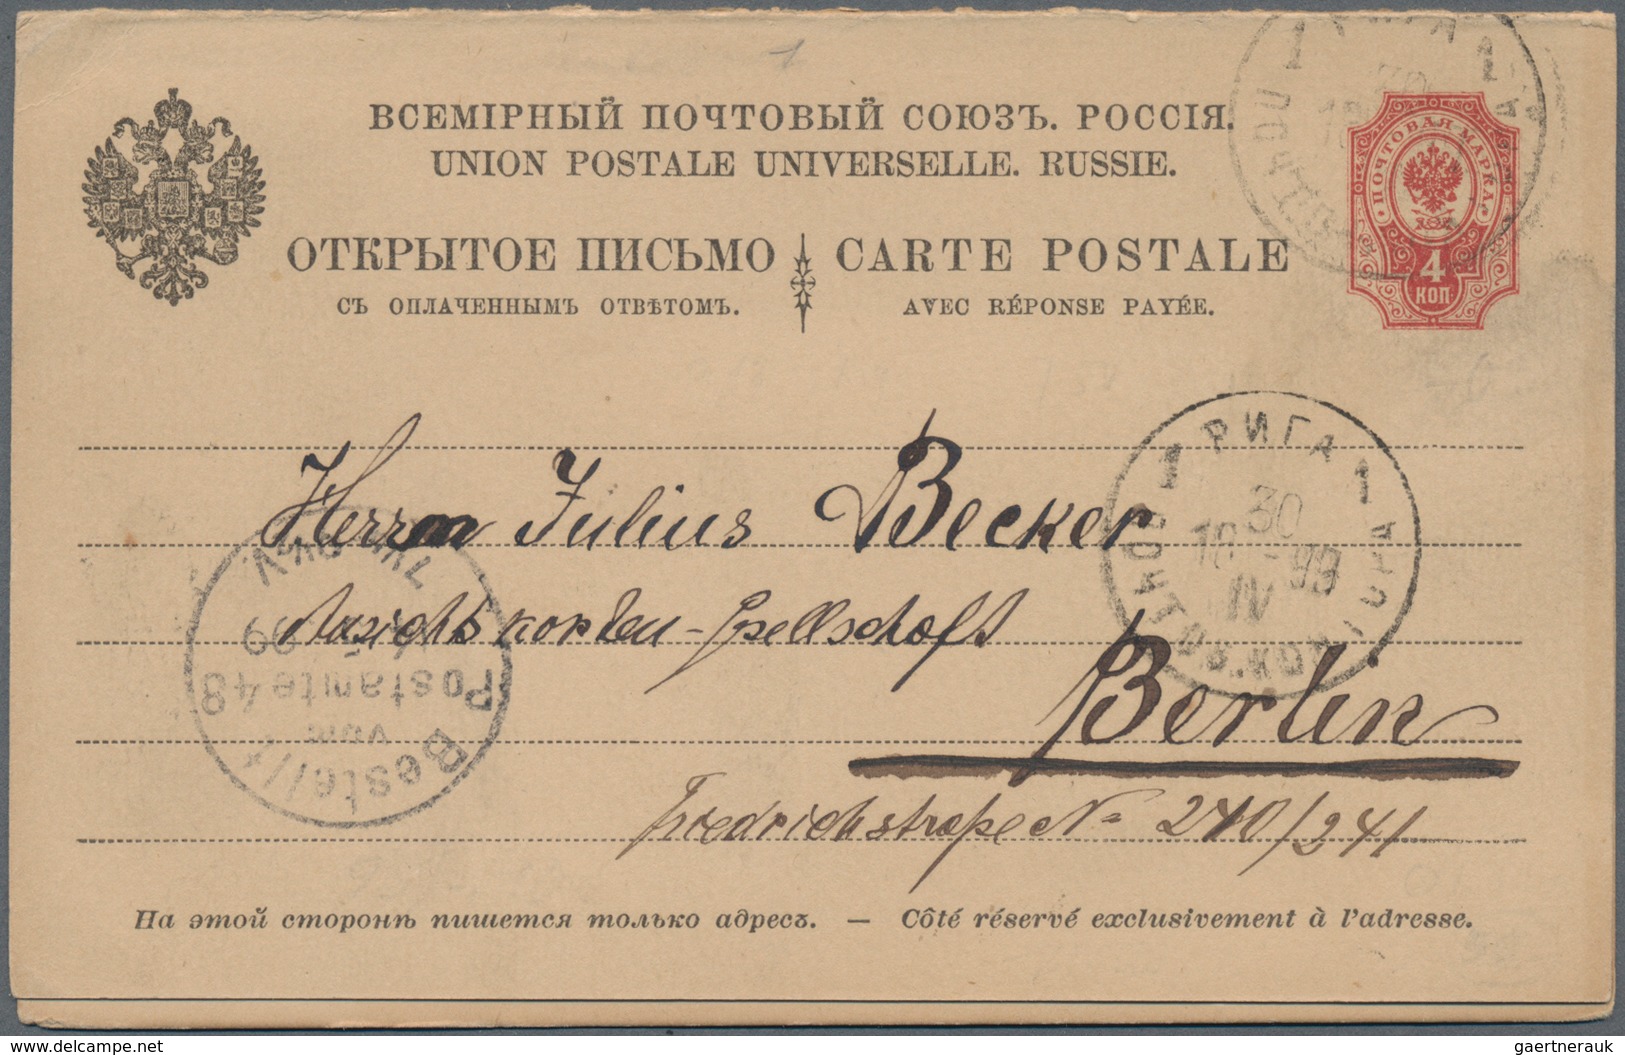 ВСЕМІРНЫЙ ПОЧТОВЫЙ СОЮЗЪ. РОССІЯ.
UNION POSTALE UNIVERSELLE. RUSSIE.
ОТКРЫТОЕ ПИСЬМО CARTE POSTALE
СЪ ОПЛАЧЕННЫМЪ ОТВѢТОМЪ. AVEC RÉPONSE PAYÉE.
ПОЧТОВАЯ МАРКА
4
КОП
1 РИГА 1
30
IV
Herrn Julius Becker
Ansichtskarten-Gesellschaft
Berlin
Friedrichstraße No 240/241
Bestellt
vom
Postamte 48
99
На этой сторонѣ пишется только адресъ. — Côté réservé exclusivement à l'adresse.
www.delcampe.net
gaertnerauk